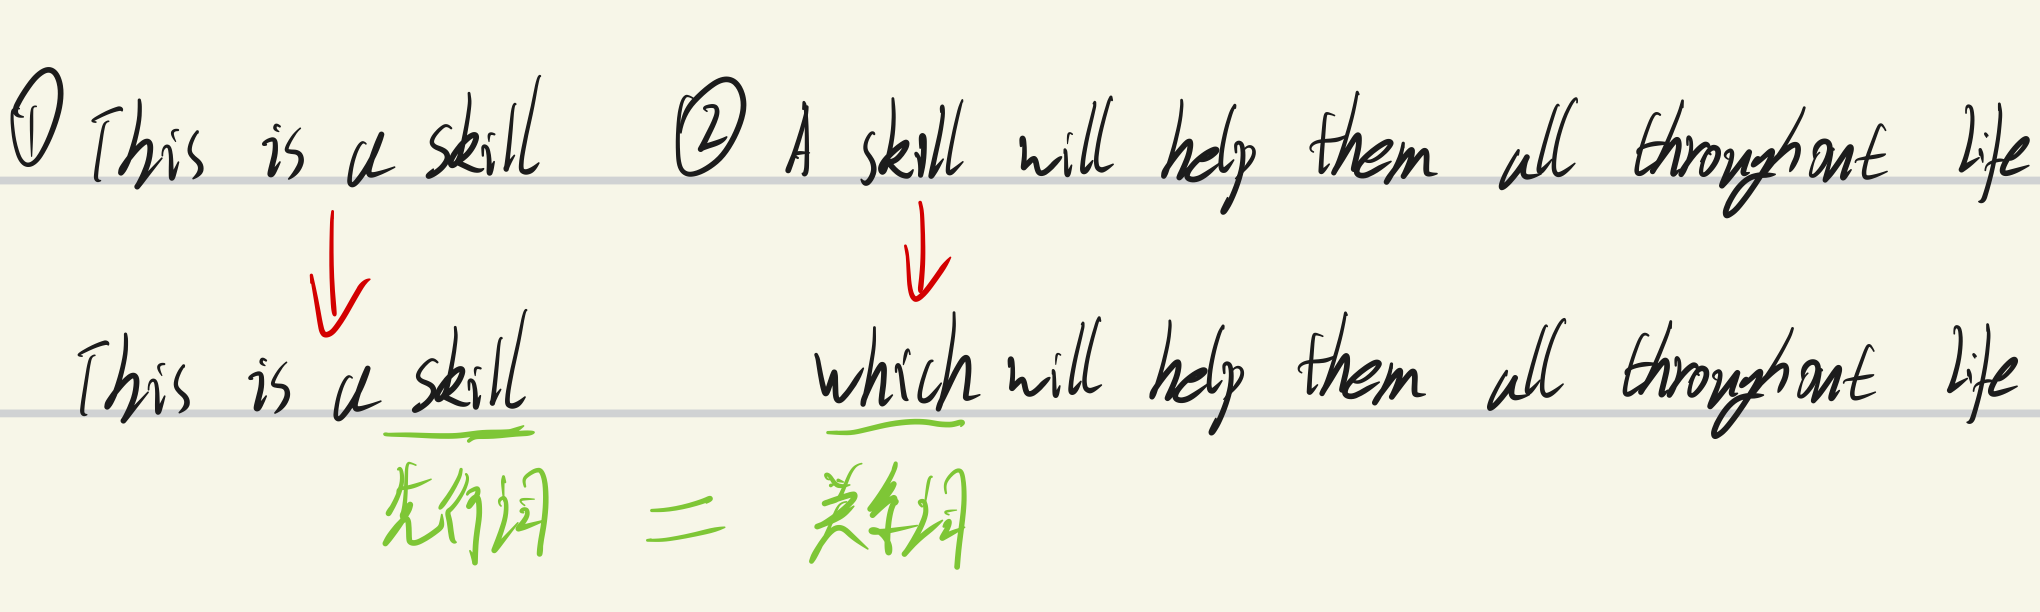 ① This is a skill ② A skill will help them all throughout life
This is a skill which will help them all throughout life
先行词 = 关系词